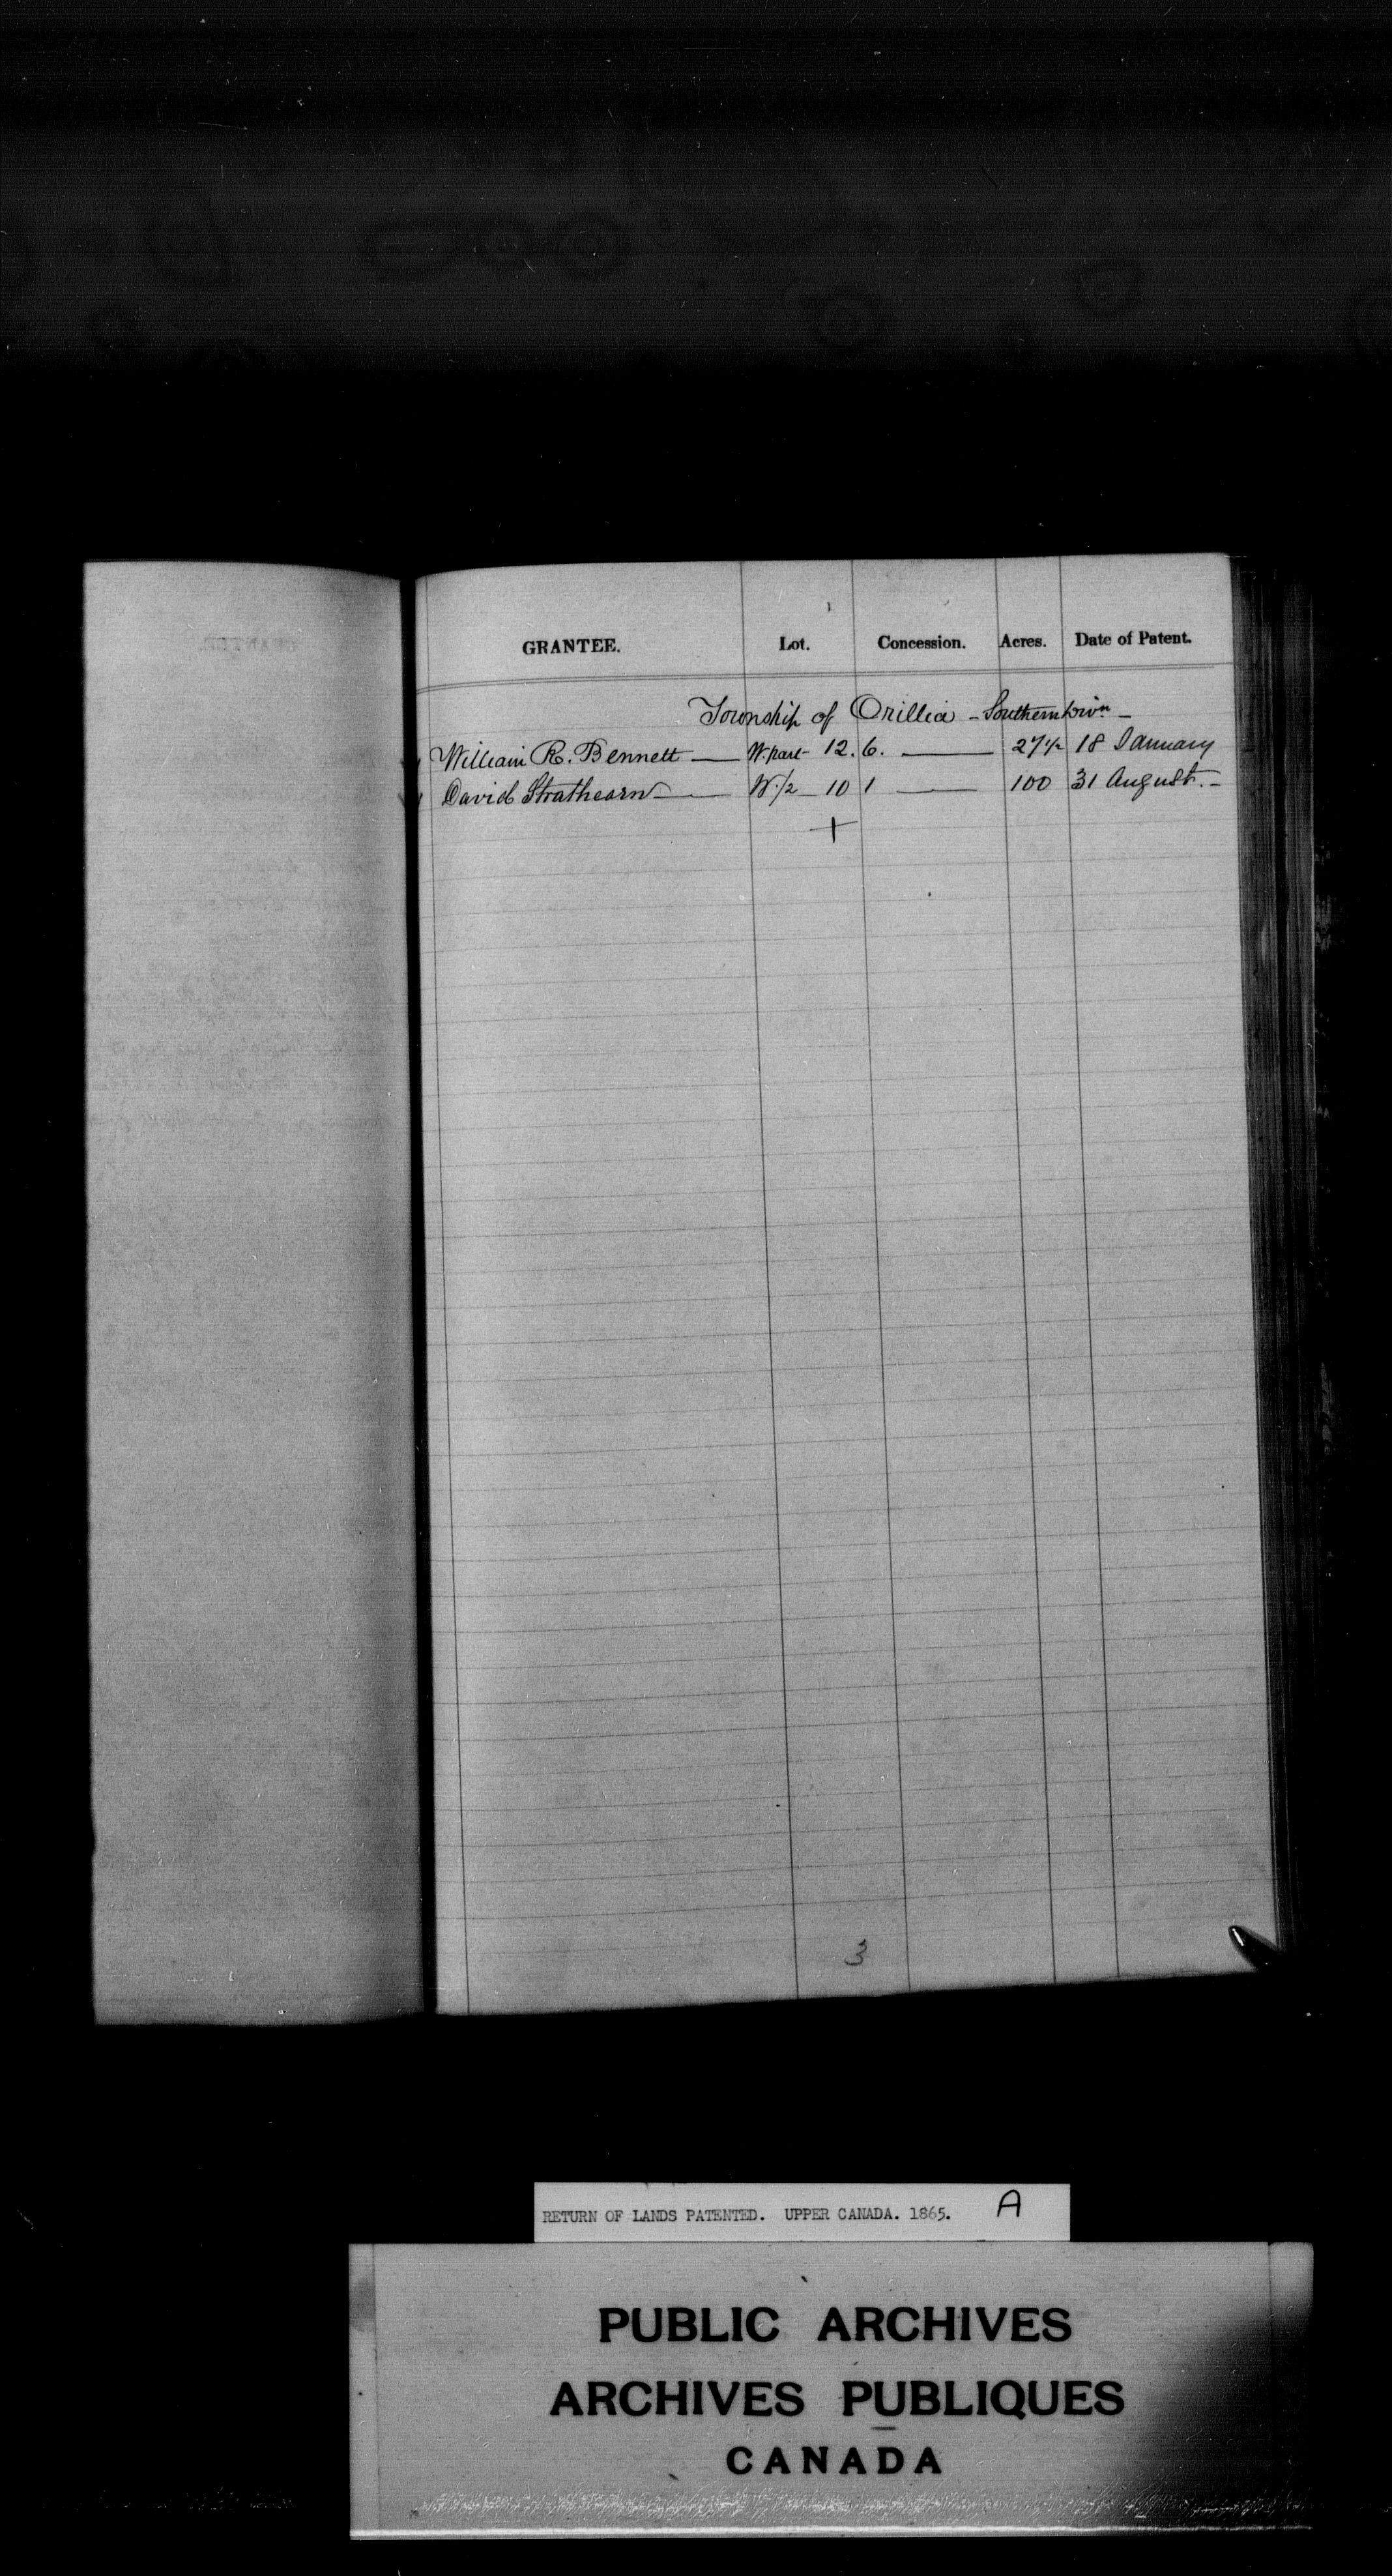 GRANTEE. Lot. Concession. Acres. Date of Patent.
Township of Orillia - Southern Divn -
William R. Bennett — W. part - 12. 6. — 27 1/2 18 January
David Strathearn — W. 1/2 — 10 1 — 100 31 August. -
+
3
RETURN OF LANDS PATENTED. UPPER CANADA. 1865. A
PUBLIC ARCHIVES
ARCHIVES PUBLIQUES
CANADA